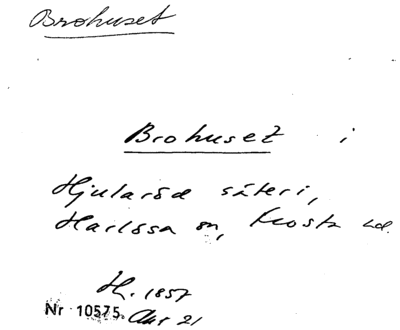 Brohuset
Brohuset i
Hjularöd säteri,
Harlösa sn, Frosta hd.
H. 1857
Nr 10575. Akt 21